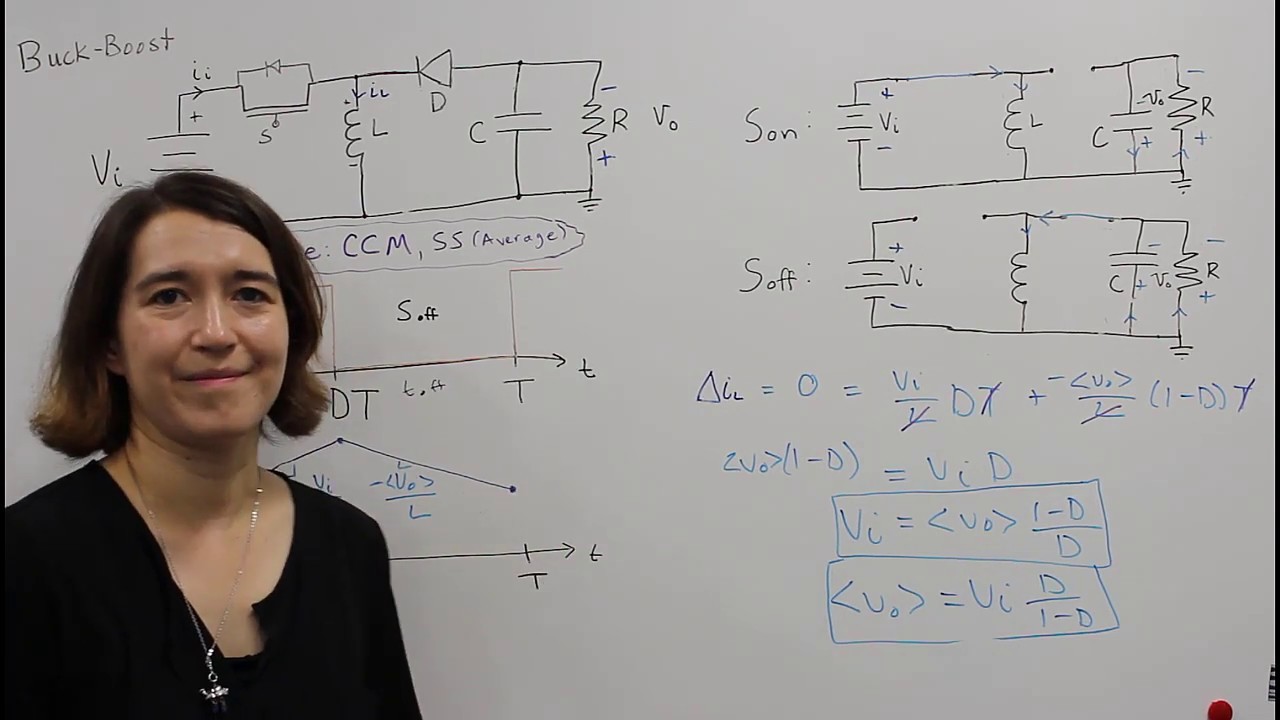 Buck-Boost
ii
+
S
Vi
iL
L
D
C
-
R
+
Vo
e: CCM, SS (Average)
S.off
DT
t.off
T
t
Vi
-<Vo>
L
T
t
Son:
+
Vi
-
L
C
-
Vo
+
-
R
+
Soff:
+
Vi
-
C
-
Vo
+
-
R
+
ΔiL = 0 = Vi/L DT + -<Vo>/L (1-D)T
<Vo>(1-D) = Vi D
Vi = <Vo> 1-D/D
<Vo> = Vi D/1-D